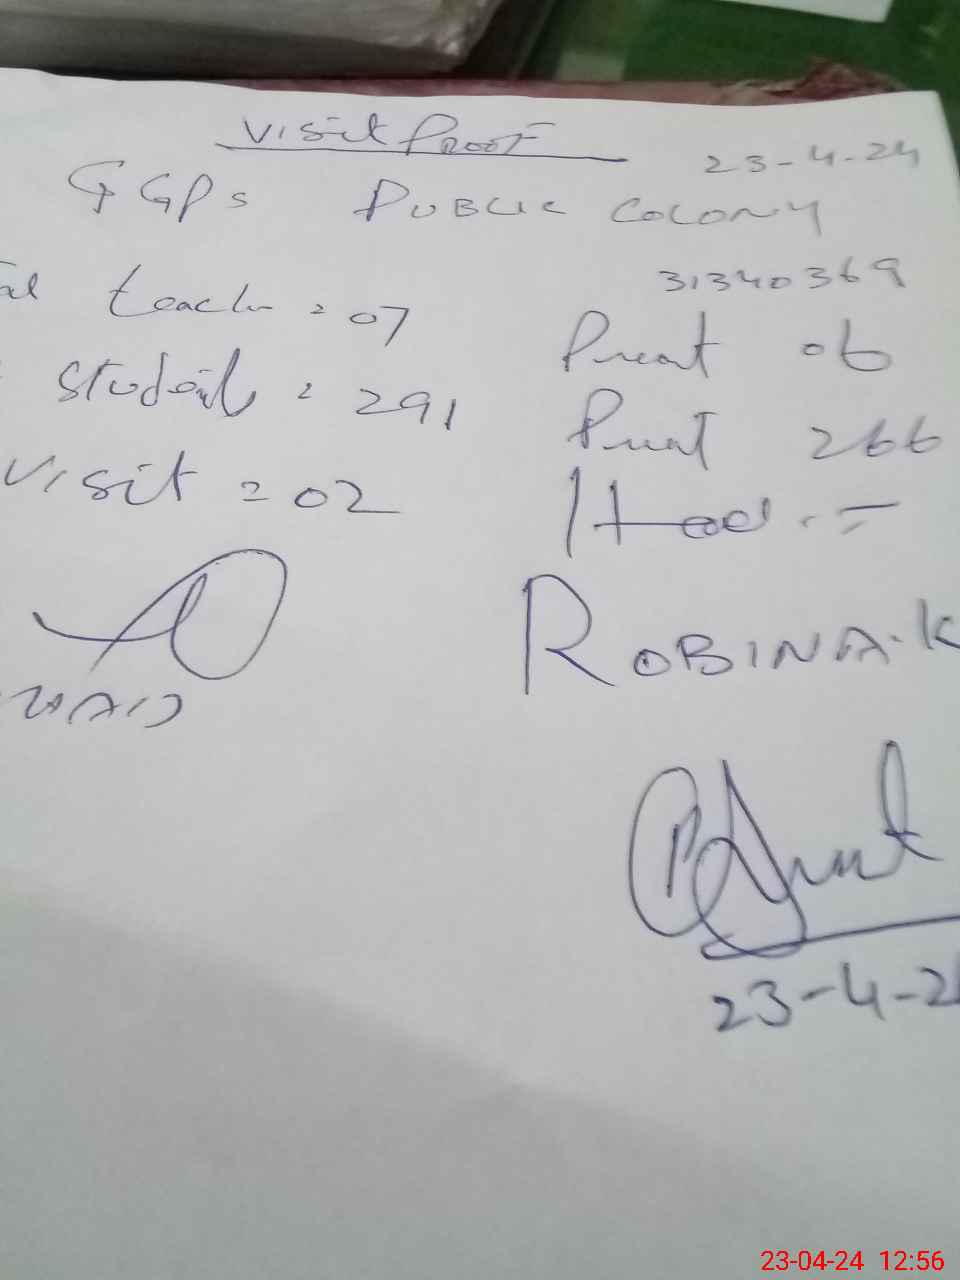 Visit Proof
23-4-24
GGPS PUBLIC COLONY
31340369
teach = 07
Present 06
Student = 291
Present 266
Visit = 02
Head :-
ROBINA.K
23-4-2
23-04-24 12:56